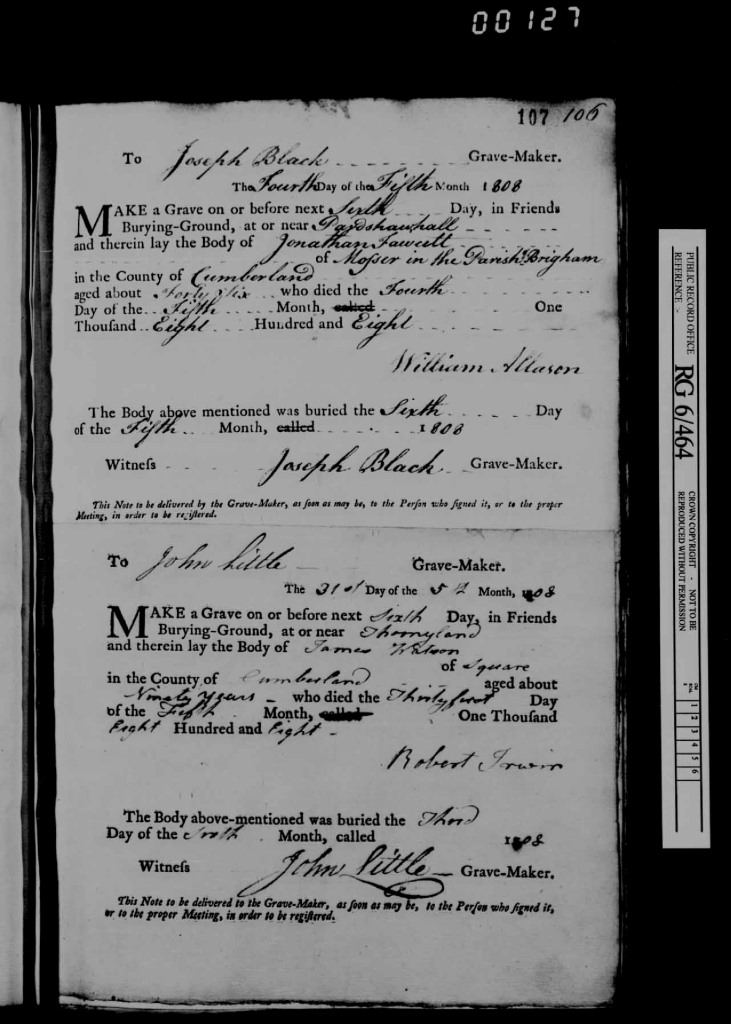 00127
107 106
To Joseph Black Grave-Maker.
The Fourth Day of the Fifth Month 1808
MAKE a Grave on or before next Sixth Day, in Friends
Burying-Ground, at or near Pardshawhall
and therein lay the Body of Jonathan Fawcett
of Mosser in the Parish Brigham
in the County of Cumberland
aged about Forty Six who died the Fourth
Day of the Fifth Month, called One
Thousand Eight Hundred and Eight
William Allason
The Body above mentioned was buried the Sixth Day
of the Fifth Month, called 1808
Witness Joseph Black Grave-Maker.
This Note to be delivered by the Grave-Maker, as soon as may be, to the Person who signed it, or to the proper
Meeting, in order to be registered.
To John Little Grave-Maker.
The 31st Day of the 5th Month, 1808
MAKE a Grave on or before next Sixth Day, in Friends
Burying-Ground, at or near
and therein lay the Body of James Watson
of Square
in the County of Cumberland aged about
Ninety Years who died the Thirtyfirst Day
of the Fifth Month, called One Thousand
Eight Hundred and Eight
Robert Irwin
The Body above-mentioned was buried the Third
Day of the Sixth Month, called 1808
Witness John Little Grave-Maker.
This Note to be delivered to the Grave-Maker, as soon as may be, to the Person who signed it,
or to the proper Meeting, in order to be registered.
PUBLIC RECORD OFFICE
REFERENCE :-
RG 6/464
CROWN COPYRIGHT - NOT TO BE
REPRODUCED WITHOUT PERMISSION
1 2 3 4 5 6